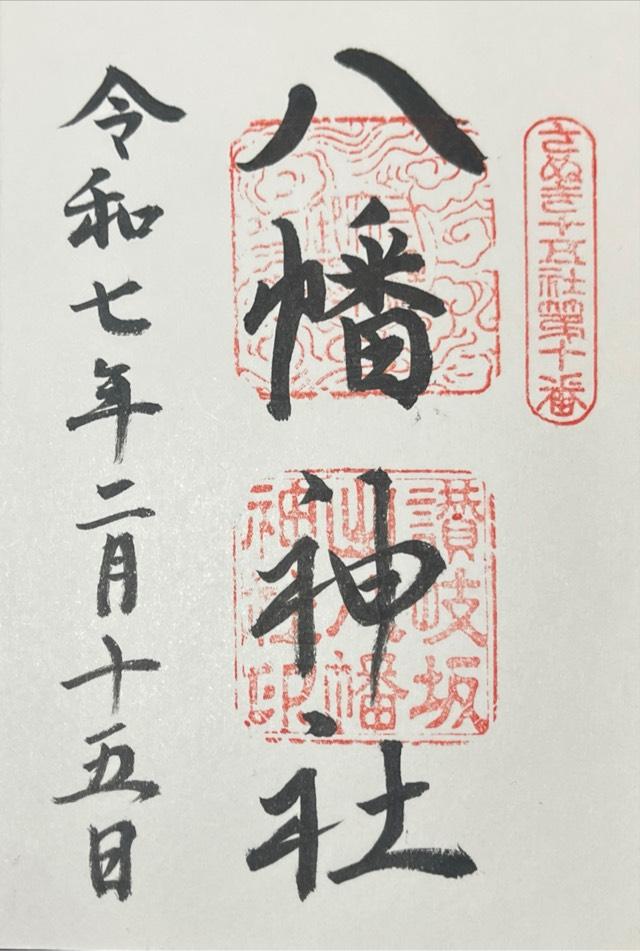 さぬき十五社第十番
八幡神社
讃岐坂
出八幡
神社印
令和七年二月十五日